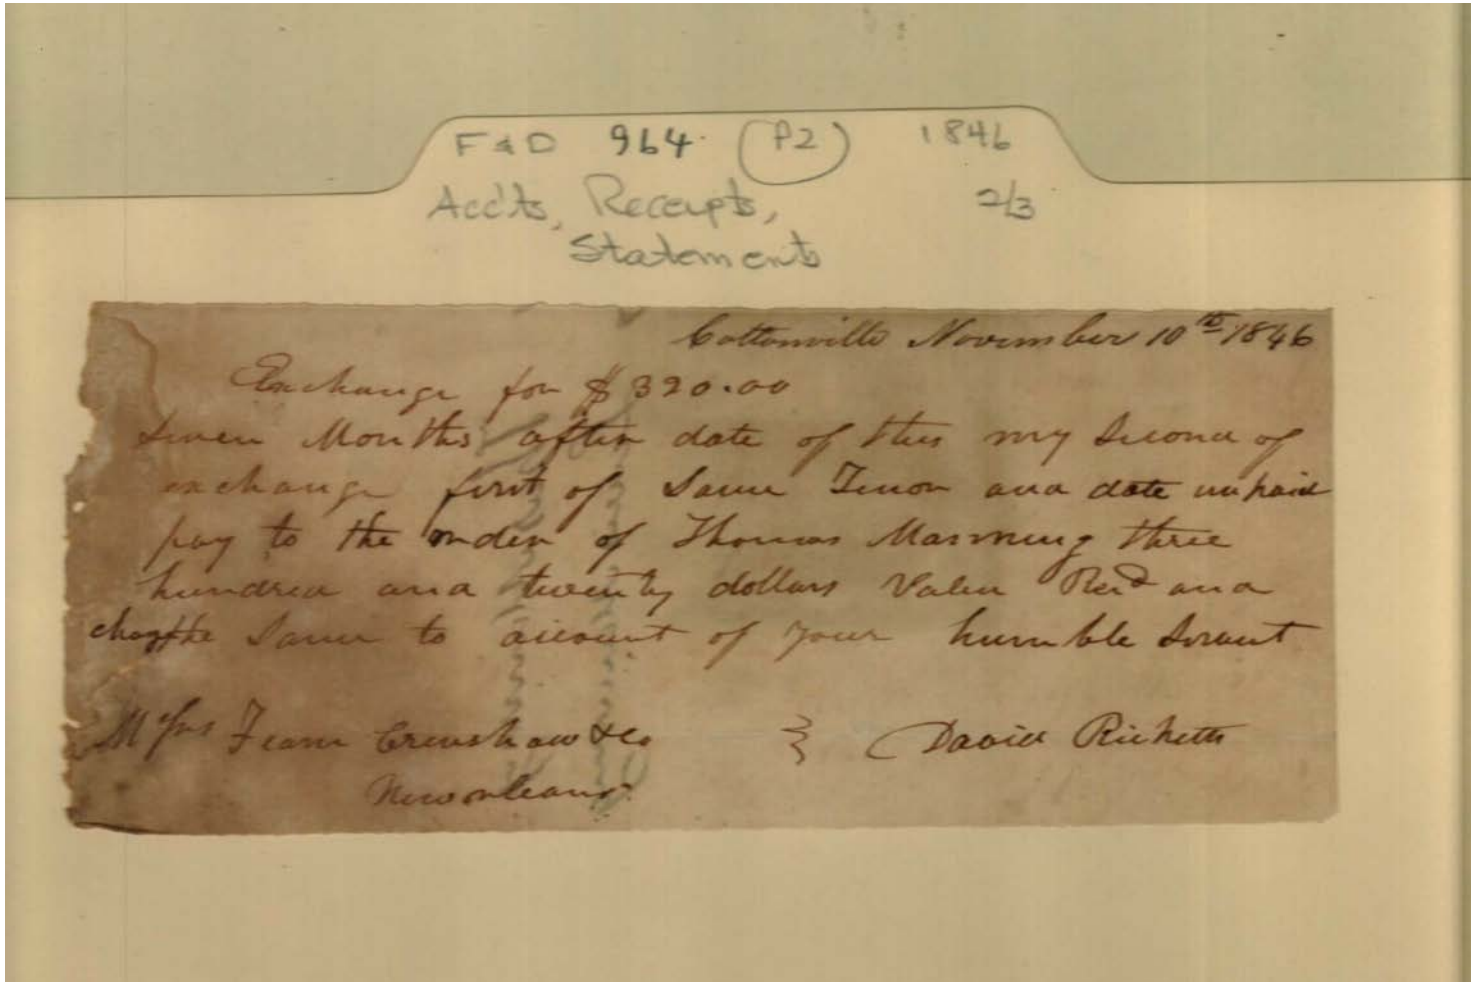 F & D 964. (P2) 1846
Acc'ts, Receipts, 2/3
Statements
Cottonville November 10th 1846
Exchange for $320.00
Seven Months after date of this my Second of
exchange first of Same Tenor and date unpaid
pay to the order of Thomas Manning three
hundred and twenty dollars Value Recd and
the Same to account of your humble Servant
Crenshaw & Co David Ricketts
New orleans